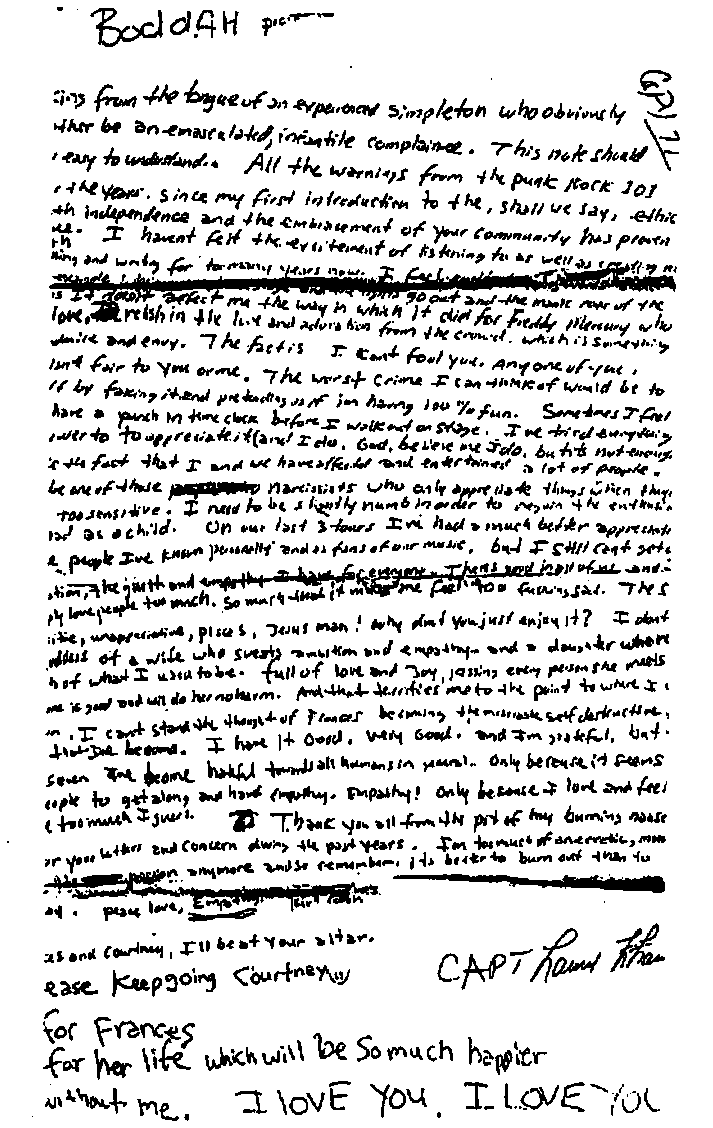 BoddAH
from the tongue of an experienced simpleton who obviously
be an emasculated, infantile complainee. This note should
easy to understand. All the warnings from the punk Rock 101
the years. since my first introduction to the, shall we say, ethic
independence and the embracement of your community has proven
I havent felt the excitement of listening to as well as creating
and writing for too many years now. I feel
go out and the manic roar of the
doesnt affect me the way in which it did for Freddy Mercury who
love, relish in the love and adoration from the crowd. which is something
and envy. The fact is I cant fool you. Any one of you.
isnt fair to you or me. The worst crime I can think of would be to
by faking it and pretending as if im having 100% fun. Sometimes I feel
have a punch in time clock before I walk out on stage. I've tried everything
to appreciate it (and I do. God, believe me I do, but its not enough
the fact that I and we have affected and entertained a lot of people.
be one of those narcissists who only appreciate things when they
Too sensitive. I need to be slightly numb in order to regain the
as a child. On our last 3 tours I've had a much better
people I've known personally and as fans of our music, but I still cant get
the guilt and empathy I have for everyone. Theres good in all of us and
love people too much. So much that it makes me feel too fucking sad. The
unappreciative, pisces, Jesus man! why dont you just enjoy it? I dont
of a wife who sweats ambition and empathy. and a daughter who
of what I used to be. full of love and joy, kissing every person she meets
is good and will do her no harm. And that terrifies me to the point to where I
I cant stand the thought of Frances becoming the miserable self destructive,
become. I have it Good. Very Good. and I'm grateful, but
seven I've become hateful towards all humans in general. Only because it seems
to get along and have empathy. Empathy! Only because I love and feel
too much I guess. Thank you all from the pit of my burning nause
your letters and concern during the past years. I'm too much of an erratic, moo
anymore and so remember, its better to burn out than to
peace love, Empathy.
and Courtney, I'll be at your altar.
ease Keep going Courtney
CAPT
for Frances
for her life which will be so much happier
without me. I LOVE YOU. I LOVE YOU